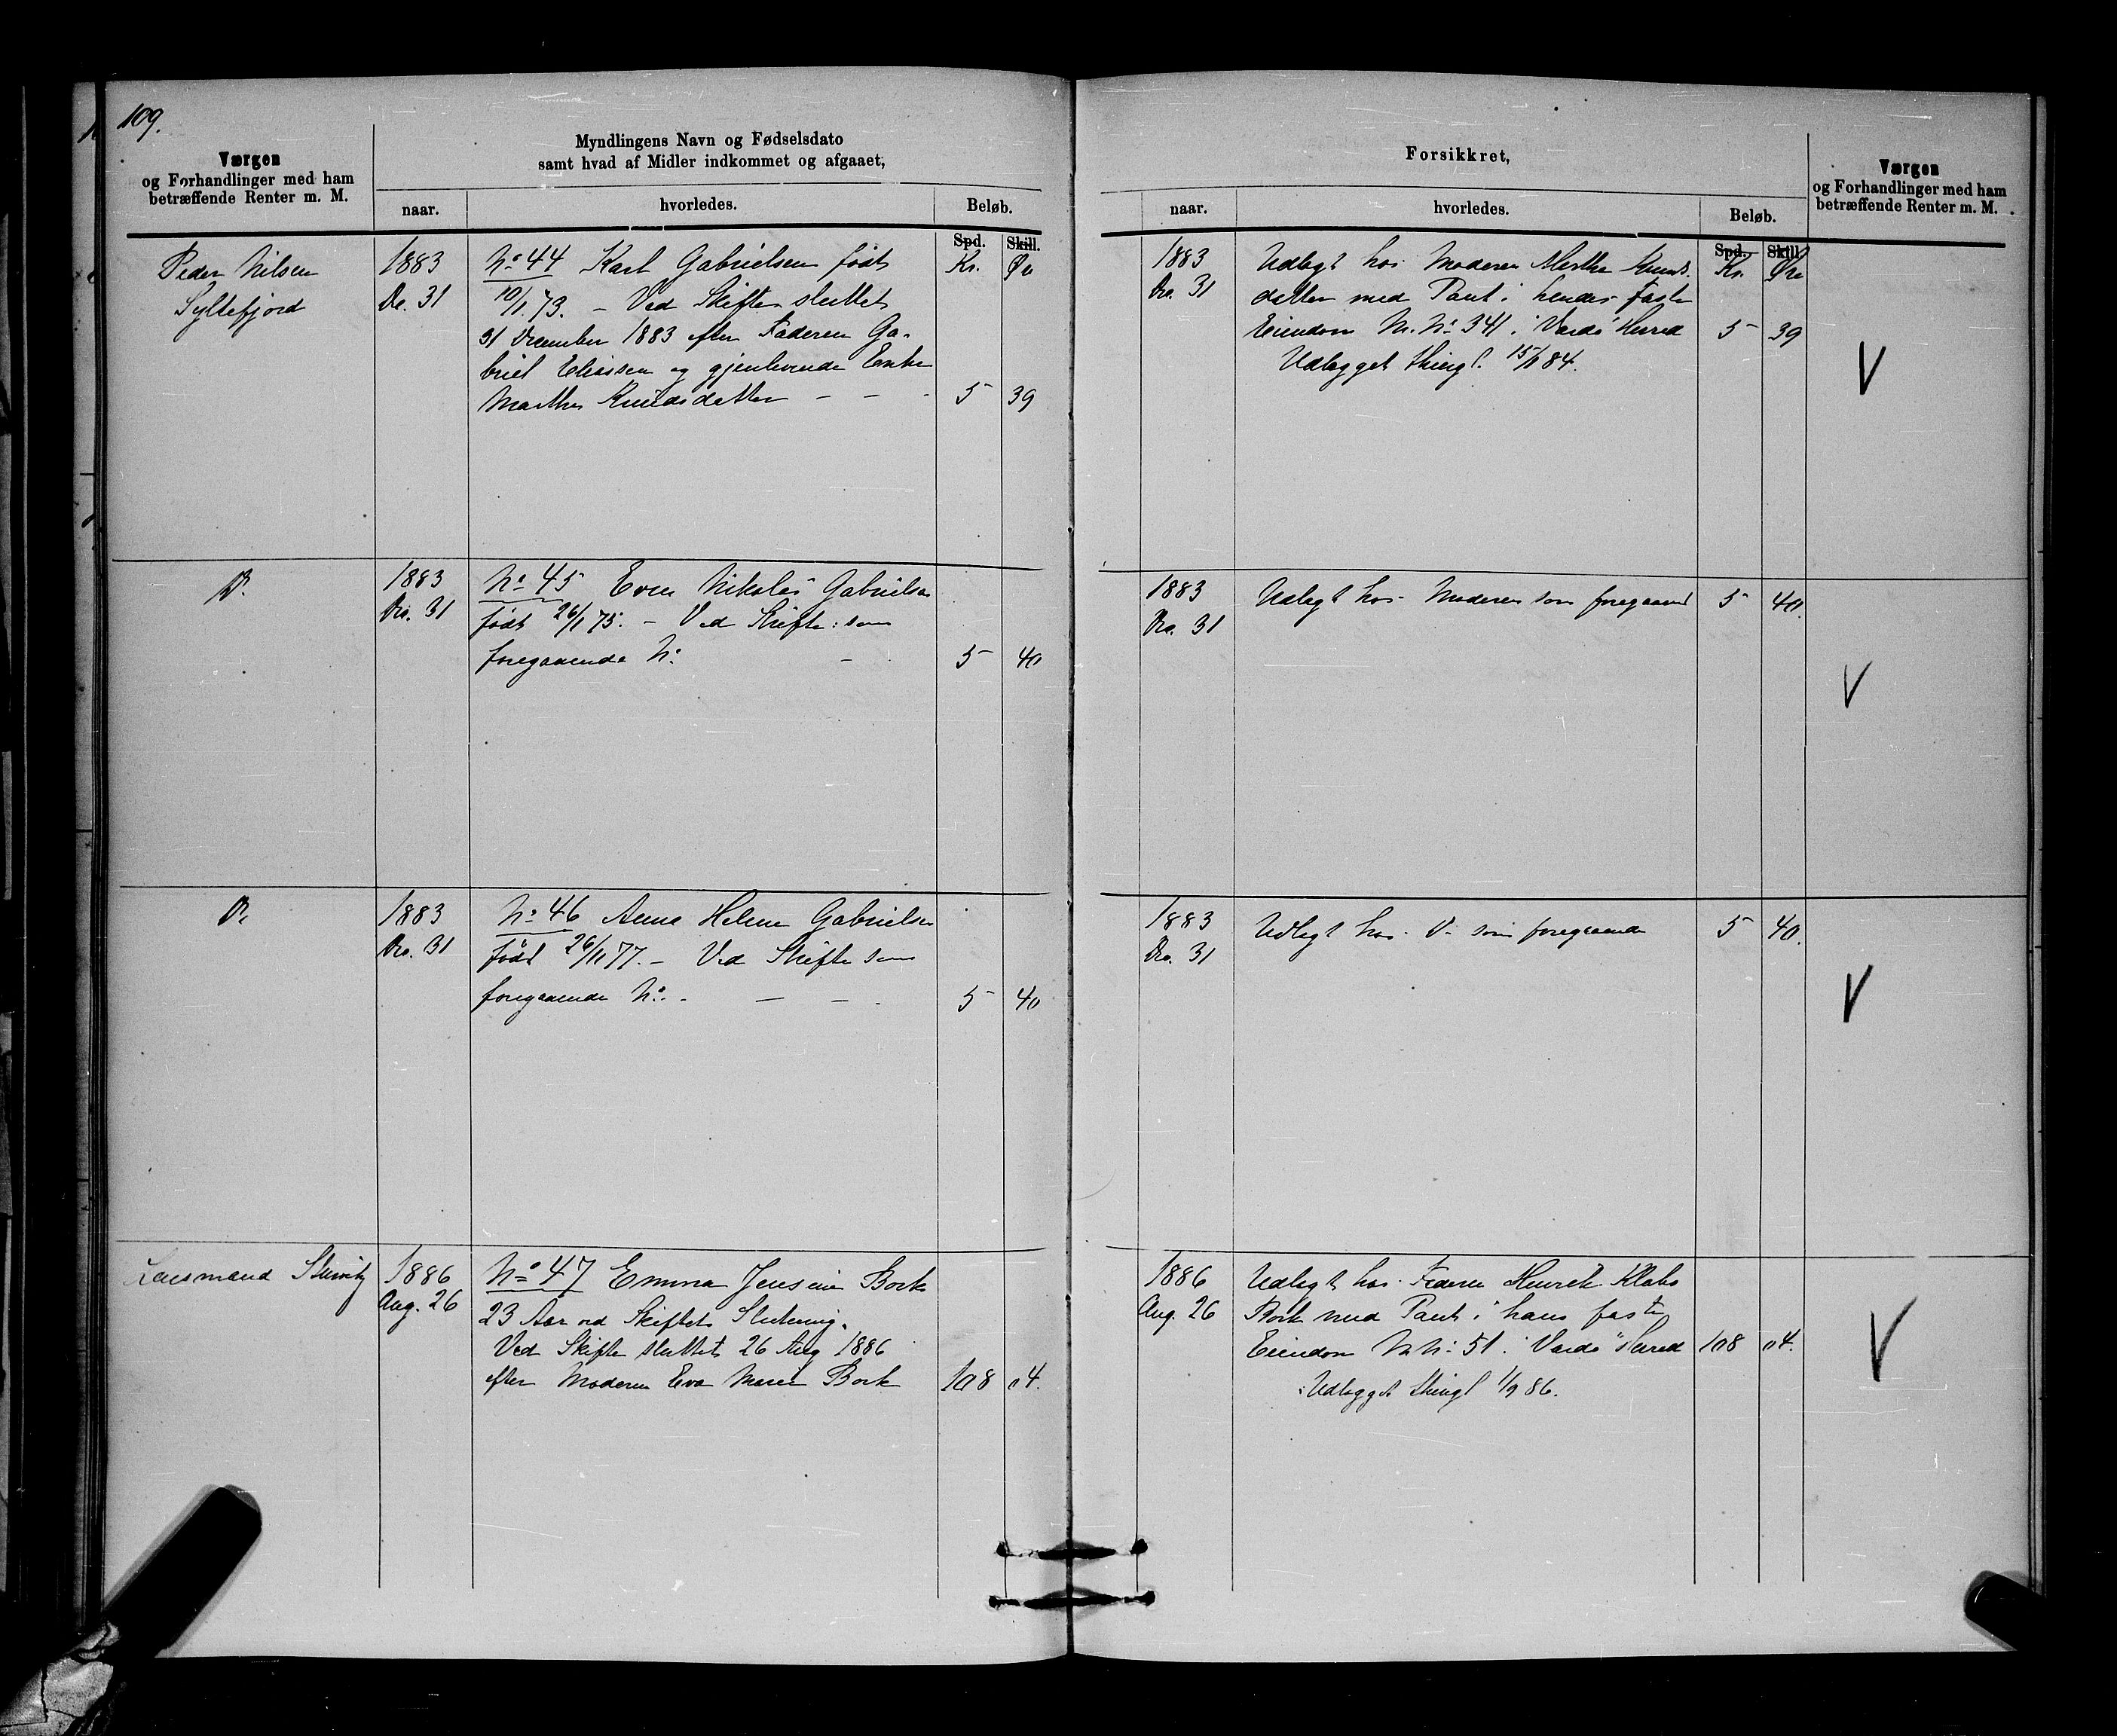 109.
Værgen
og Forhandlinger med ham
betræffende Renter m. M.
Myndlingens Navn og Fødselsdato
samt hvad af Midler indkommet og afgaaet,
naar.
hvorledes.
Beløb.
Spd. Skill.
Peder Nilsen
Syltefjord
1883
Dc. 31
No 44 Karl Gabrielsen født
10/1 73. – Ved Skifte sluttet
31 December 1883 efter Faderen Ga-
briel Eliassen og gjenlevende Enke
Marthe Knudsdatter – – -
Kr. Ør
5 39
Do
1883
Dec. 31
No 45 Even Nikolai Gabrielsen
født 26/1 75. – Ved Skifte som
foregaaende No –
5 40
Do
1883
Dec. 31
No 46 Anna Helene Gabrielsen
født 26/11 77. – Ved Skifte som
foregaaende No. – –
5 40
Lensmand
1886
Aug. 26
No 47 Emma Jensine Bork
23 Aar ved Skiftets Slutning.
Ved Skifte sluttet 26 Aug 1886
efter Moderen Eva Marie Bork
108 04.
Forsikkret,
naar.
hvorledes.
Beløb.
Spd. Skill.
Værgen
og Forhandlinger med ham
betræffende Renter m. M.
1883
Dec. 31
Udlagt hos Moderen Marthe Knuds-
datter med Pant i hendes faste
Eiendom M. No 341 i Vardø Herred
Udlægget thingl. 15/1 84.
Kr. Øre
5 39
V
1883
Dec. 31
Udlagt hos Moderen som foregaaende
5 40.
V
1883
Dec. 31
Udlagt hos Do som foregaaende
5 40.
V
1886
Aug. 26
Udlagt hos Faderen Henrik Klabo
Bork med Pant i hans faste
Eiendom M No 51 i Vardø Herred
108 04.
Udlægget thingl 1/9 86.
V